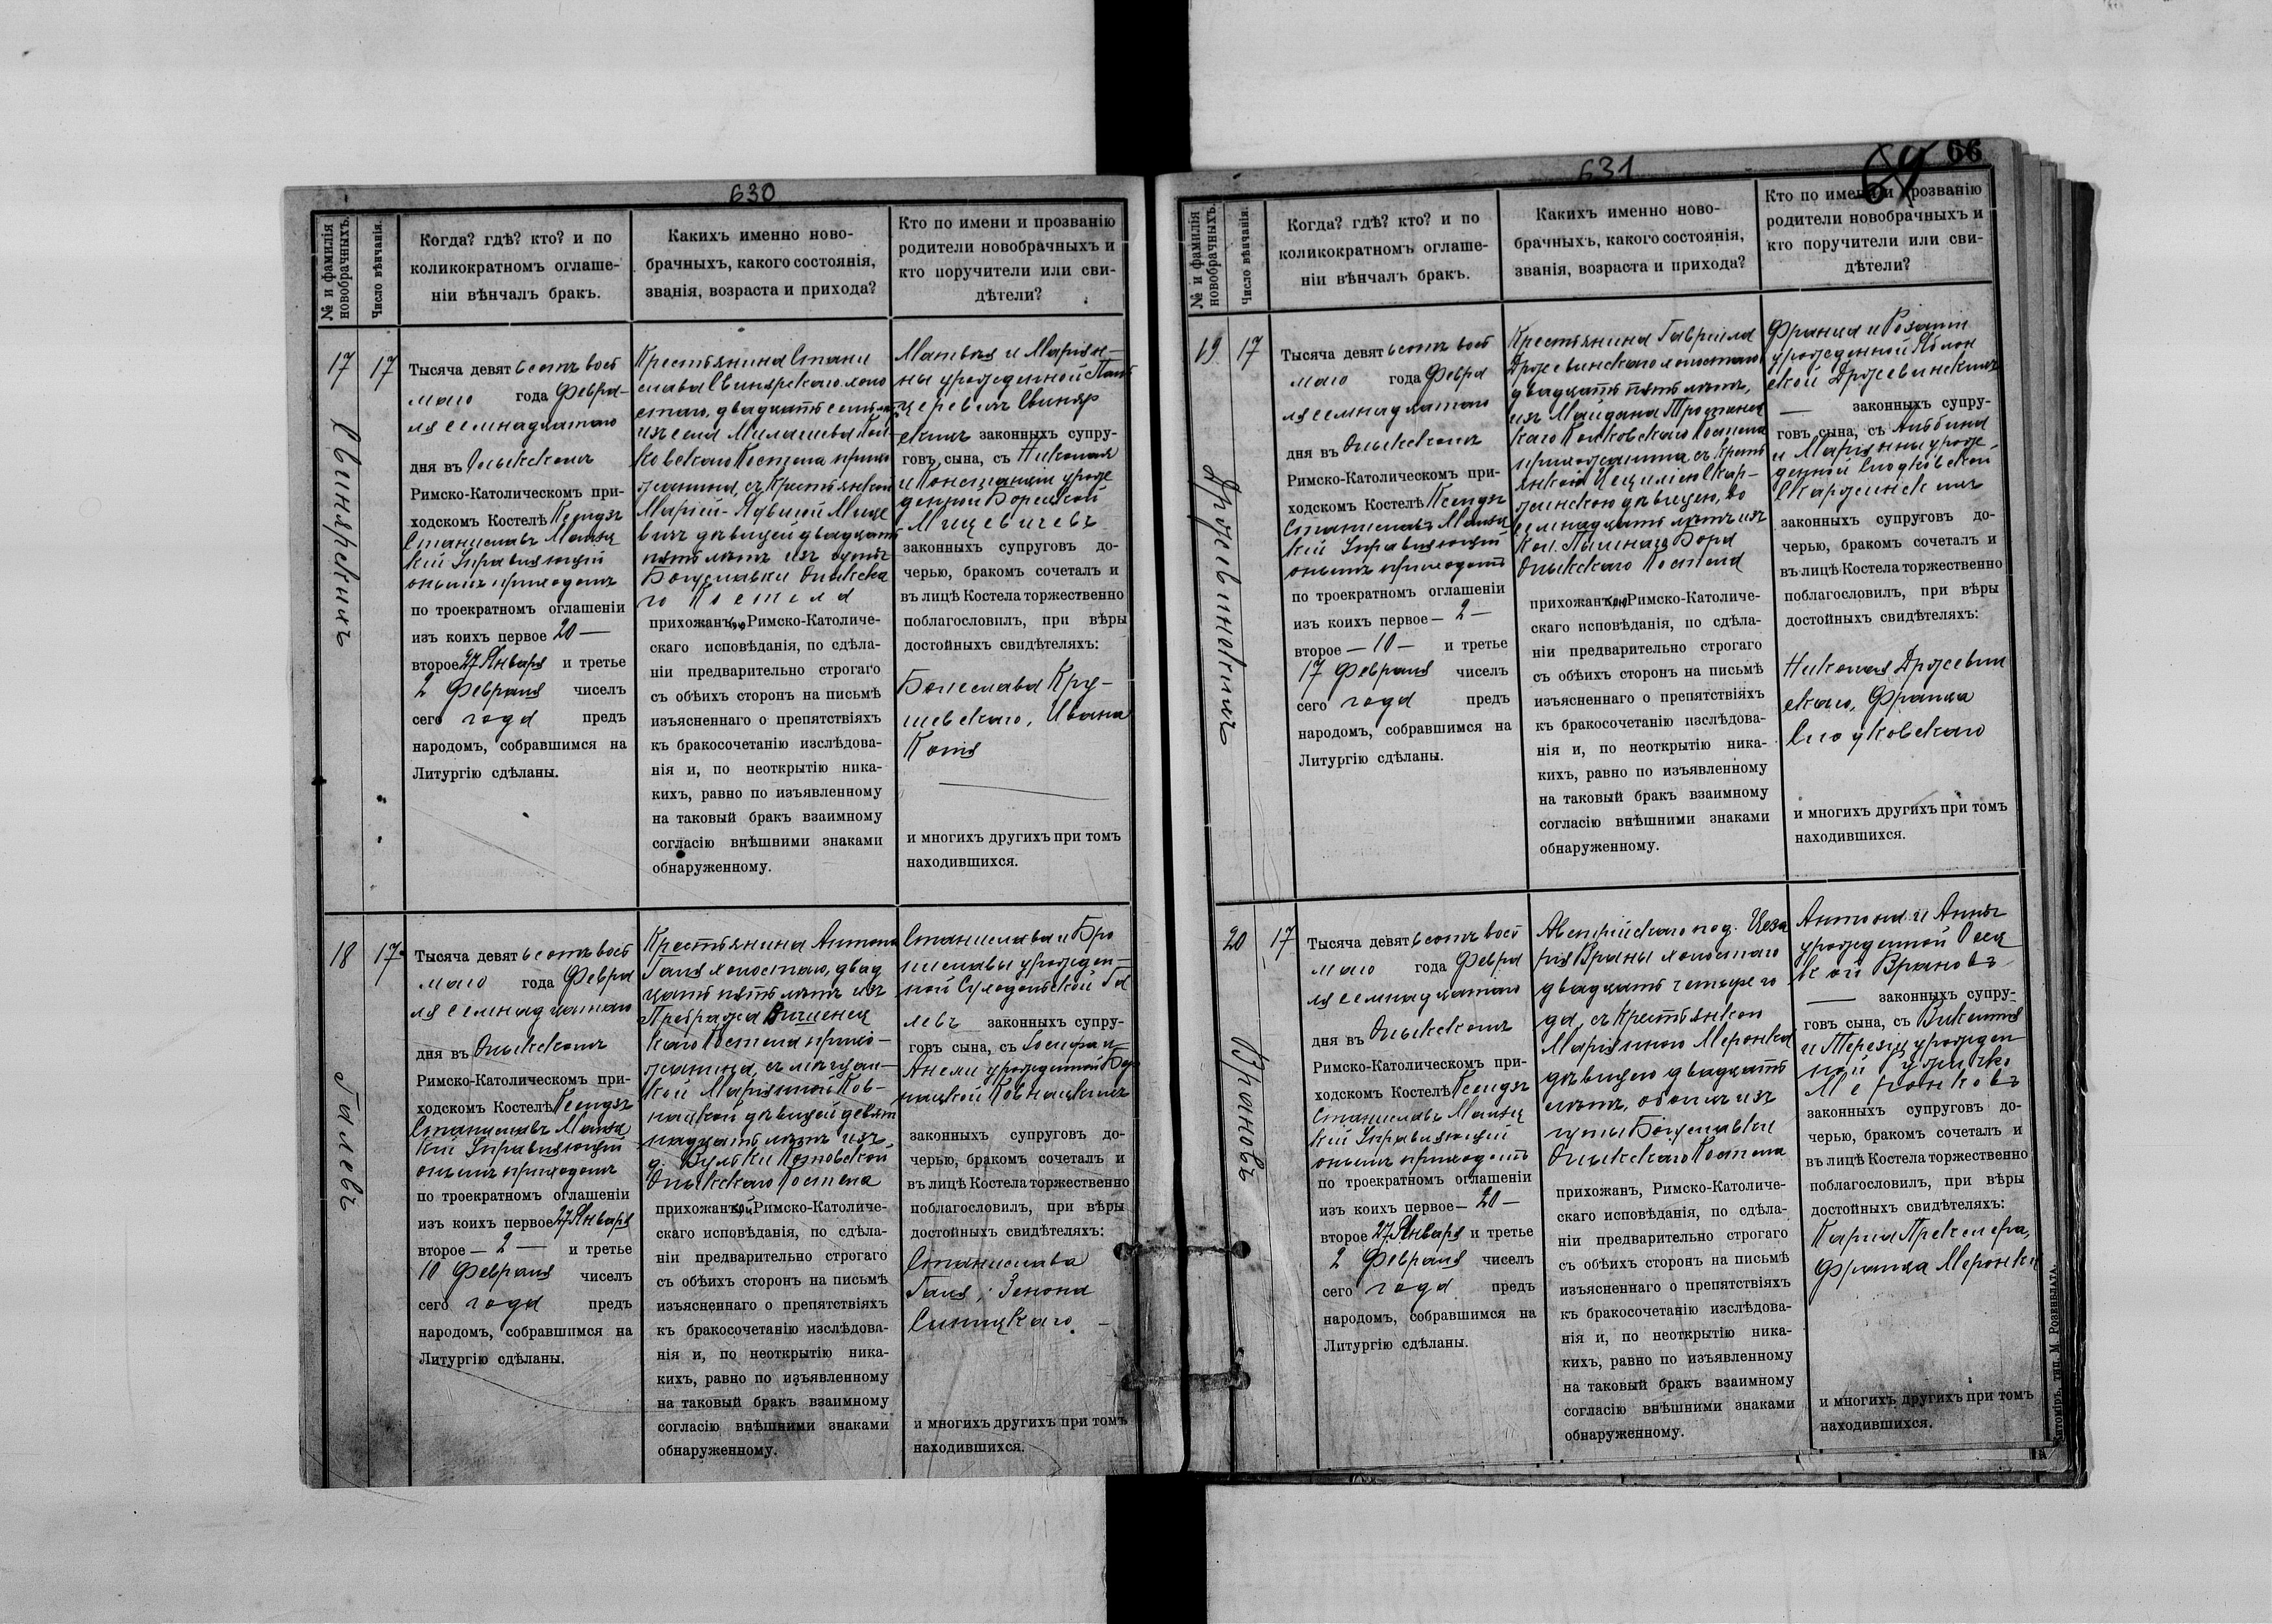 630
№ и фамилія
новобрачныхъ.
Число вѣнчанія.
Когда? гдѣ? кто? и по
коликократномъ оглаше-
ніи вѣнчалъ бракъ.
Какихъ именно ново-
брачныхъ, какого состоянія,
званія, возраста и прихода?
Кто по имени и прозванію
родители новобрачныхъ и
кто поручители или сви-
дѣтели?
17
Свинярскихъ
17
Тысяча девятьсотъ вось
маго года Февра-
ля семнадцатаго
дня въ Олыкскомъ
Римско-Католическомъ при-
ходскомъ Костелѣ Ксендзъ
Станиславъ
кій Управляющій
онымъ приходомъ
по троекратномъ оглашеніи
изъ коихъ первое 20 —
второе 27 Января и третье
2 Февраля чиселъ
сего года предъ
народомъ, собравшимся на
Литургію сдѣланы.
Крестьянина Стани
слава Свинярскаго холо
стаго, двадцати семи лѣтъ
изъ села
ковскаго Костела прихо
жанина, съ Крестьянкою
Маріей-Ядвигой Мице
вичъ дѣвицей двадцати
пяти лѣтъ изъ
Богуславки Олыкска
го Костела
прихожанкою Римско-Католиче-
скаго исповѣданія, по сдѣла-
ніи предварительно строгаго
съ обѣихъ сторонъ на письмѣ
изъясненнаго о препятствіяхъ
къ бракосочетанію изслѣдова-
нія и, по неоткрытію ника-
кихъ, равно по изъявленному
на таковый бракъ взаимному
согласію внѣшними знаками
обнаруженному.
Матвѣя и Маріан-
ны урожденной
Свиняр
скихъ законныхъ супру-
говъ сына, съ Николая
и Констанціи урож
денной Борецкой
- Мицевичевъ
законныхъ супруговъ до-
черью, бракомъ сочеталъ и
въ лицѣ Костела торжественно
поблагословилъ, при вѣры
достойныхъ свидѣтеляхъ:
Болеслава Кру-
шевскаго, Ивана
и многихъ другихъ при томъ
находившихся.
18
Галевъ
17
Тысяча девятьсотъ вось
маго года Февра
ля семнадцатаго
дня въ Олыкскомъ
Римско-Католическомъ при-
ходскомъ Костелѣ Ксендзъ
Станиславъ
кій Управляющій
онымъ приходомъ
по троекратномъ оглашеніи
изъ коихъ первое 27 Января
второе — 2 — и третье
10 Февраля чиселъ
сего года предъ
народомъ, собравшимся на
Литургію сдѣланы.
Крестьянина Антона
Галя холостаго, двад
цати пяти лѣтъ изъ
Пребража Вишенец
каго Костела прихо-
жанина, съ мѣщан-
кой Маріанной Ков-
нацкой дѣвицей девят
надцати лѣтъ изъ
д. Вульки Котовской
Олыкскаго Костела
прихожанкой Римско-Католиче-
скаго исповѣданія, по сдѣла-
ніи предварительно строгаго
съ обѣихъ сторонъ на письмѣ
изъясненнаго о препятствіяхъ
къ бракосочетанію изслѣдова-
нія и, по неоткрытію ника-
кихъ, равно по изъявленному
на таковый бракъ взаимному
согласію внѣшними знаками
обнаруженному.
Станислава и Бро
ниславы урожден-
ной Суходольской Га
левъ законныхъ супру-
говъ сына, съ Іосифа и
Анели урожденной
Ковнацкихъ
законныхъ супруговъ до-
черью, бракомъ сочеталъ и
въ лицѣ Костела торжественно
поблагословилъ, при вѣры
достойныхъ свидѣтеляхъ:
Станислава
Галя, Зенона
Синицкаго
и многихъ другихъ при томъ
находившихся.
631
66
№ и фамилія
новобрачныхъ.
Число вѣнчанія.
Когда? гдѣ? кто? и по
коликократномъ оглаше-
ніи вѣнчалъ бракъ.
Какихъ именно ново-
брачныхъ, какого состоянія,
званія, возраста и прихода?
Кто по имени и прозванію
родители новобрачныхъ и
кто поручители или сви-
дѣтели?
19
17
Тысяча девятьсотъ вось
маго года Февра
ля семнадцатаго
дня въ Олыкскомъ
Римско-Католическомъ при-
ходскомъ Костелѣ Ксендзъ
Станиславъ
кій Управляющій
онымъ приходомъ
по троекратномъ оглашеніи
изъ коихъ первое — 2 —
второе — 10 — и третье
17 Февраля чиселъ
сего года предъ
народомъ, собравшимся на
Литургію сдѣланы.
Крестьянина Гавріила
Држевинскаго холостаго
двадцати пяти лѣтъ,
изъ Майдана Тростянец
каго Колковскаго Костела
прихожанина съ Крест
янкою Цециліею Скар-
жинскою дѣвицею, во
семнадцати лѣтъ изъ
Кол. Пыльнаго Бора
Олыкскаго Костела
прихожанкою Римско-Католиче-
скаго исповѣданія, по сдѣла-
ніи предварительно строгаго
съ обѣихъ сторонъ на письмѣ
изъясненнаго о препятствіяхъ
къ бракосочетанію изслѣдова-
нія и, по неоткрытію ника-
кихъ, равно по изъявленному
на таковый бракъ взаимному
согласію внѣшними знаками
обнаруженному.
Франца и Розаліи
урожденной Яблон
ской Држевинскихъ
— законныхъ супру-
говъ сына, съ Альбина
и Маріанны урож-
денной Слодковской
Скаржинскихъ
законныхъ супруговъ до-
черью, бракомъ сочеталъ и
въ лицѣ Костела торжественно
поблагословилъ, при вѣры
достойныхъ свидѣтеляхъ:
Николая Држевин
скаго, Франца
Слодковскаго
и многихъ другихъ при томъ
находившихся.
20
Врановъ
17
Тысяча девятьсотъ вось
маго года Февра
ля семнадцатаго
дня въ Олыкскомъ
Римско-Католическомъ при-
ходскомъ Костелѣ Ксендзъ
Станиславъ
кій Управляющій
онымъ приходомъ
по троекратномъ оглашеніи
изъ коихъ первое — 20 —
второе 27 Января и третье
2 Февраля чиселъ
сего года предъ
народомъ, собравшимся на
Литургію сдѣланы.
Австрійскаго под. Цеза
рія Враны холостаго
двадцати четырехъ го
да, съ Крестьянкою
Маріанною Меронка
дѣвицею двадцати
лѣтъ, обоихъ изъ
Богуславки
Олыкскаго Костела
прихожан, Римско-Католиче-
скаго исповѣданія, по сдѣла-
ніи предварительно строгаго
съ обѣихъ сторонъ на письмѣ
изъясненнаго о препятствіяхъ
къ бракосочетанію изслѣдова-
нія и, по неоткрытію ника-
кихъ, равно по изъявленному
на таковый бракъ взаимному
согласію внѣшними знаками
обнаруженному.
Антона и Анны
урожденной
Врановъ
— законныхъ супру-
говъ сына, съ Викентія
и Терезы урожден
ной
Меронковъ
законныхъ супруговъ до-
черью, бракомъ сочеталъ и
въ лицѣ Костела торжественно
поблагословилъ, при вѣры
достойныхъ свидѣтеляхъ:
Карла Прекслера,
Франца Меронки
и многихъ другихъ при томъ
находившихся.
Житоміръ, тип. М. Розенблата.